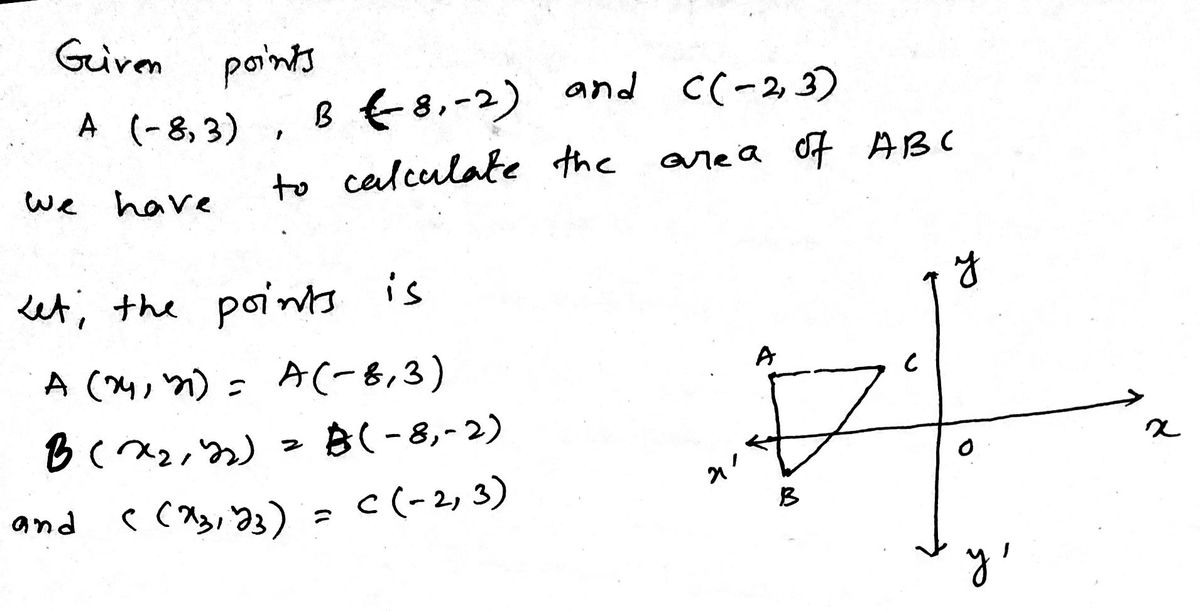 Given points
A (-8,3), B (-8,-2) and C(-2,3)
we have to calculate the area of ABC
Let, the points is
A (x₁, y₁) = A(-8,3)
B (x₂, y₂) = B(-8,-2)
and C (x₃, y₃) = C(-2,3)
y
A
C
x'
O
x
B
y'